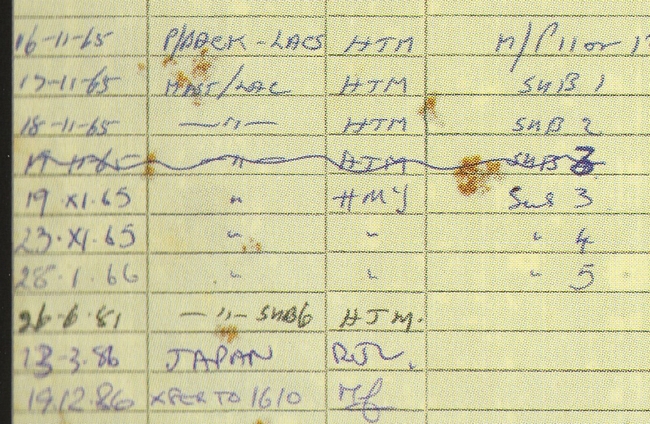 16-11-65 P/PACK-LACS HTM
17-11-65 MAST/LAC HTM SUB 1
18-11-65 —"— HTM SUB 2
19-11-65 " HTM SUB 3
19.XI.65 " HMJ SUB 3
23.XI.65 " " " 4
28.1.66 " " " 5
26-6.81 —"— SUB6 HJM.
13-3.86 JAPAN
19.12.86 XFER TO 1610